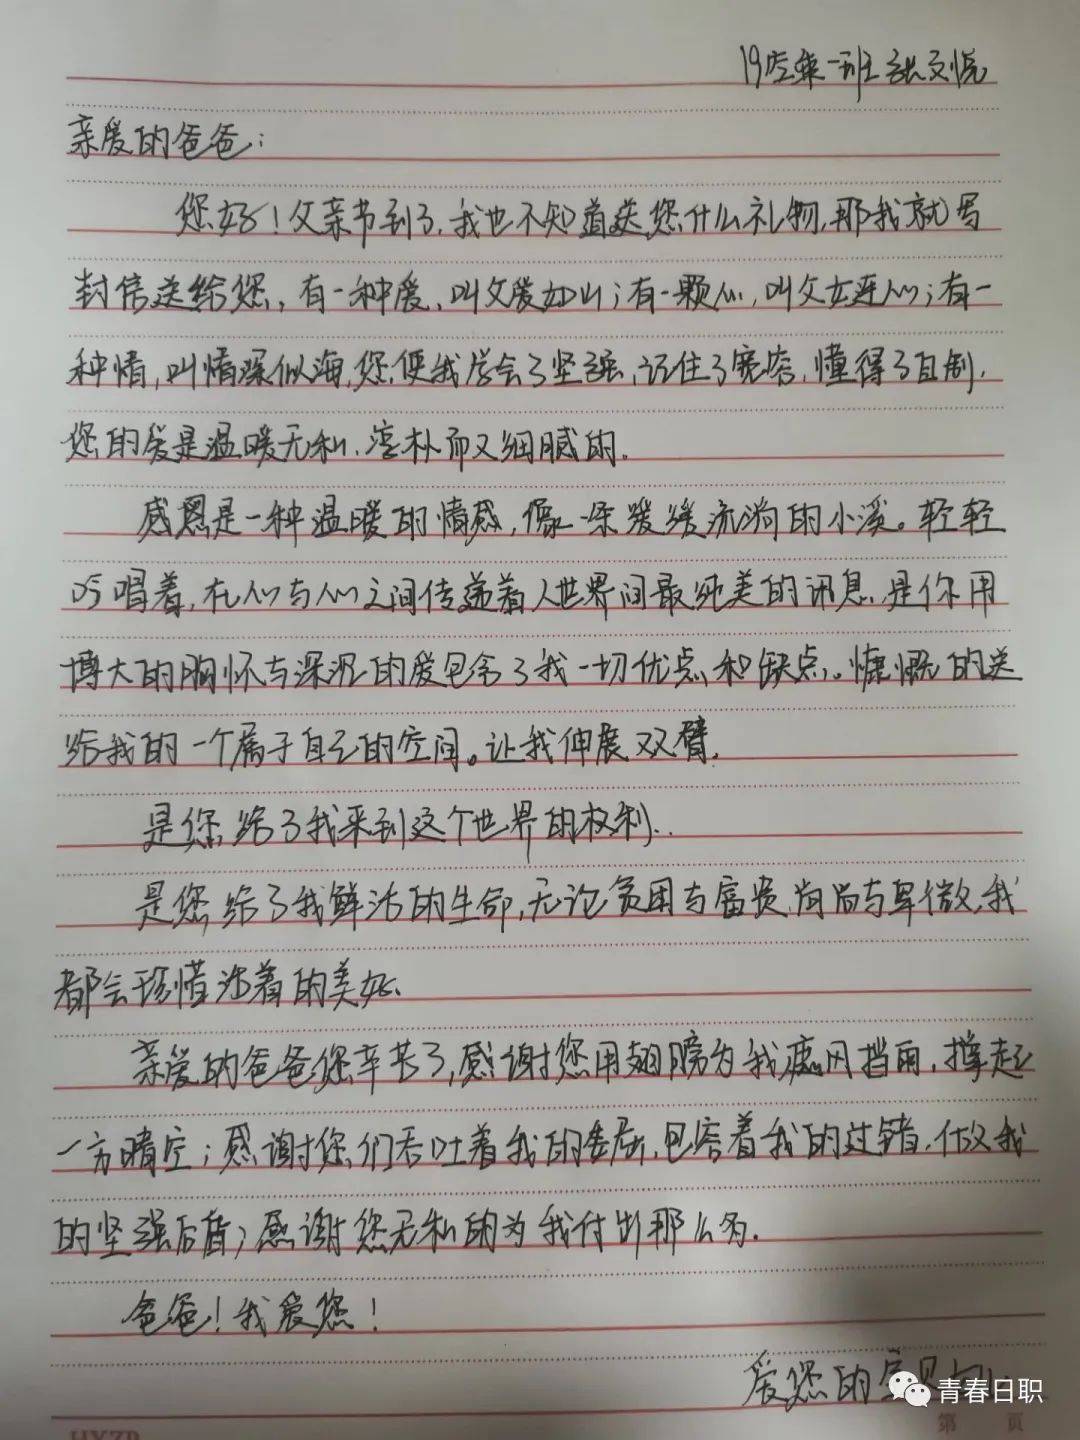 19空乘一班 张文悦
亲爱的爸爸:
您好!父亲节到了,我也不知道送您什么礼物,那我就写
封信送给您,有一种爱,叫父爱如山;有一颗心,叫父女连心;有一
种情,叫情深似海,您使我学会了坚强,记住了宽容,懂得了自制,
您的爱是温暖无私,淳朴而又细腻的.
感恩是一种温暖的情感,像一条缓缓流淌的小溪。轻轻
吟唱着,在心与心之间传递着人世界间最纯美的讯息,是你用
博大的胸怀与深沉的爱包含了我一切优点和缺点,。慷慨的送
给我的一个属于自己的空间。让我伸展双臂,
是您给了我来到这个世界的权利..
是您给了我鲜活的生命,无论贫困与富贵,高尚与卑微,我
都会珍惜活着的美好.
亲爱的爸爸您辛苦了,感谢您用翅膀为我遮风挡雨,撑起
一方晴空;感谢您们吞吐着我的委屈,包容着我的过错,做我
的坚强后盾;感谢您无私的为我付出那么多.
爸爸!我爱您!
爱您的宝贝
青春日职
第 页
HXZP